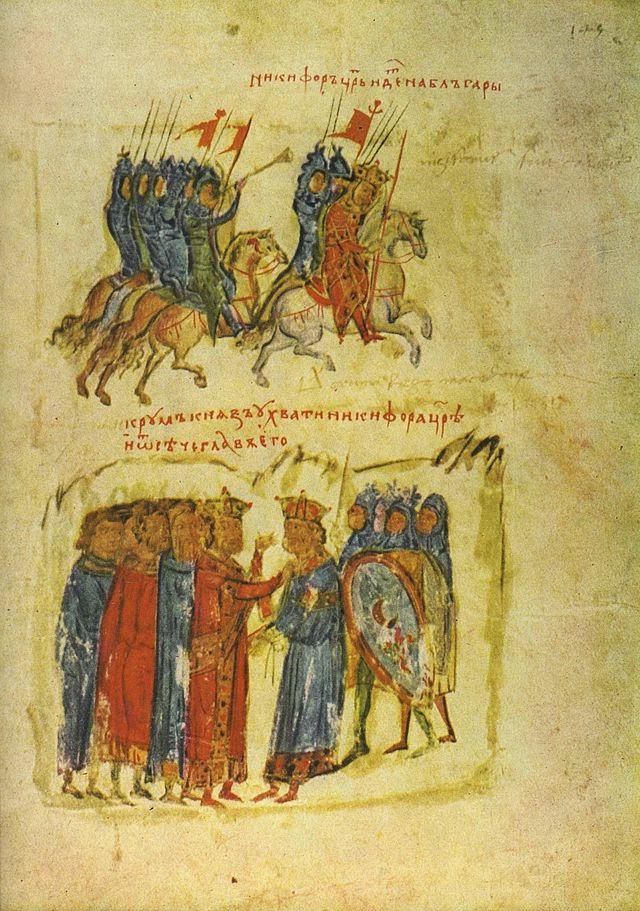 145
никифоръ цр҃ь идеⷮ на блъгары
крумъ кнѧзъ ухвати никифора цр҃ѣ
и ѿсѣче главѫ его